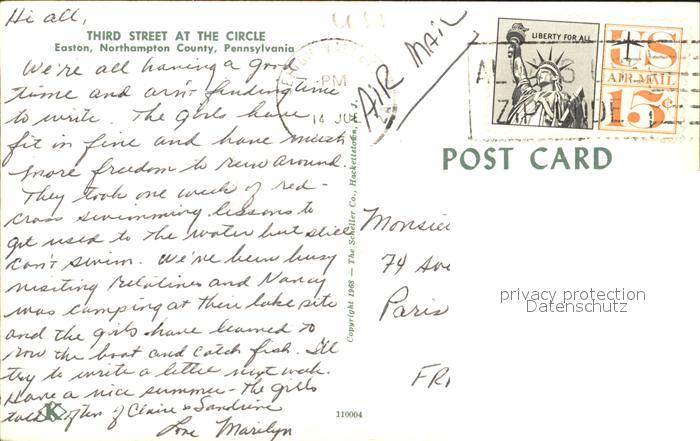 Hi all,
USA
THIRD STREET AT THE CIRCLE
Easton, Northampton County, Pennsylvania
We're all having a good
time and arn't finding time
to write. The girls have
fit in fine and have much
more freedom to run around.
They took one week of red-
cross swimming lessons to
get used to the water but still
can't swim. We've been busy
visiting relatives and Nancy
was camping at their lake site
and the girls have learned to
row the boat and catch fish. I'll
try to write a letter next week.
Have a nice summer - The girls
often of Claire & Sandrine
Love Marilyn
K
110004
Copyright 1968 — The Scheller Co., Hackettstown, N. J.
PM
14 JUL
AIR MAIL
LIBERTY FOR ALL
US
AIR MAIL
15¢
POST CARD
Monsieu
74 Ave
Paris
FR
privacy protection
Datenschutz